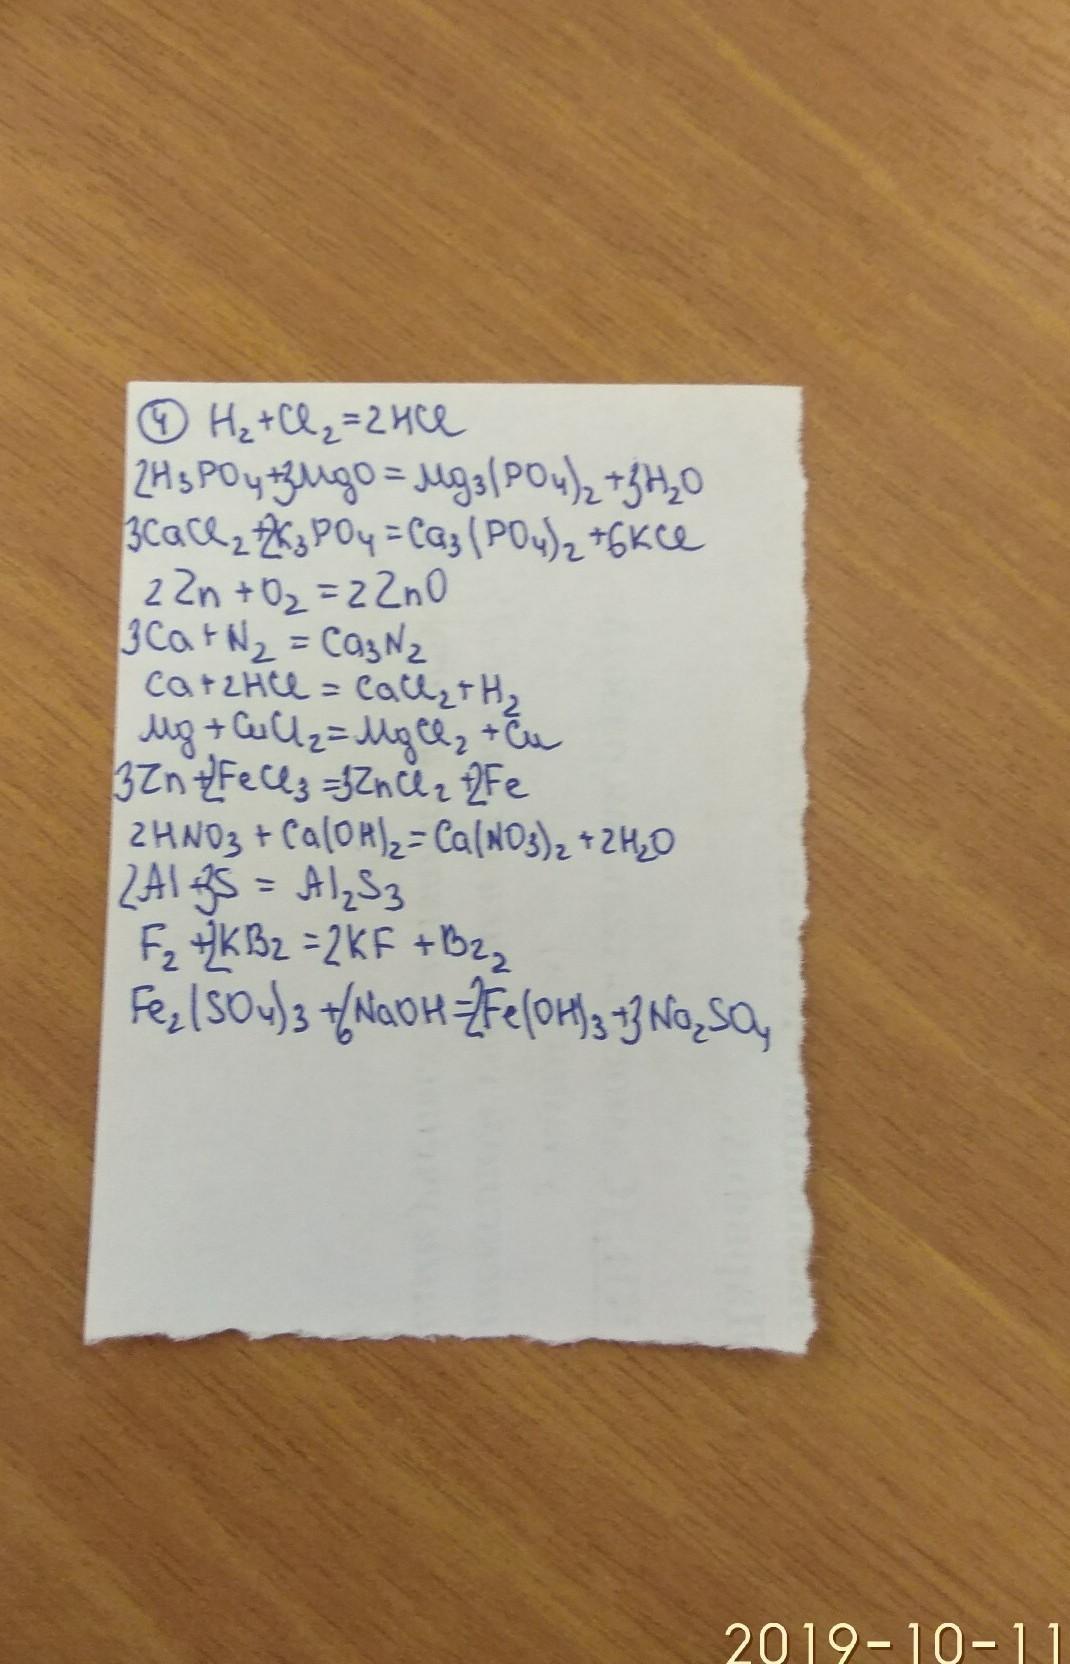 ④ H₂+Cl₂=2HCl
2H₃PO₄+3MgO=Mg₃(PO₄)₂+3H₂O
3CaCl₂+2K₃PO₄=Ca₃(PO₄)₂+6KCl
2Zn+O₂=2ZnO
3Ca+N₂=Ca₃N₂
Ca+2HCl=CaCl₂+H₂
Mg+CuCl₂=MgCl₂+Cu
3Zn+2FeCl₃=3ZnCl₂+2Fe
2HNO₃+Ca(OH)₂=Ca(NO₃)₂+2H₂O
2Al+3S=Al₂S₃
F₂+2KBr=2KF+Br₂
Fe₂(SO₄)₃+6NaOH=2Fe(OH)₃+3Na₂SO₄
2019-10-11